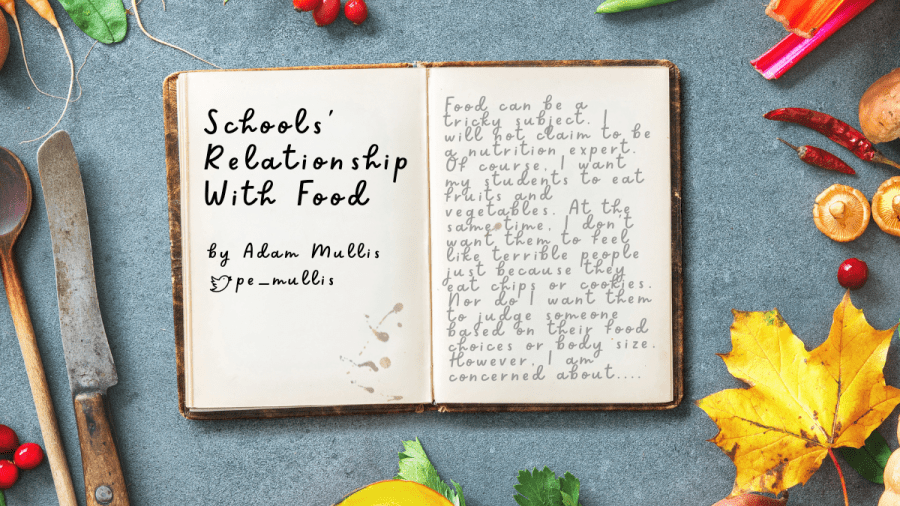 Schools'
Relationship
With Food
by Adam Mullis
pe_mullis
Food can be a
tricky subject. I
will not claim to be
a nutrition expert.
Of course, I want
my students to eat
fruits and
vegetables. At the
same time, I don't
want them to feel
like terrible people
just because they
eat chips or cookies.
Nor do I want them
to judge someone
based on their food
choices or body size.
However, I am
concerned about....